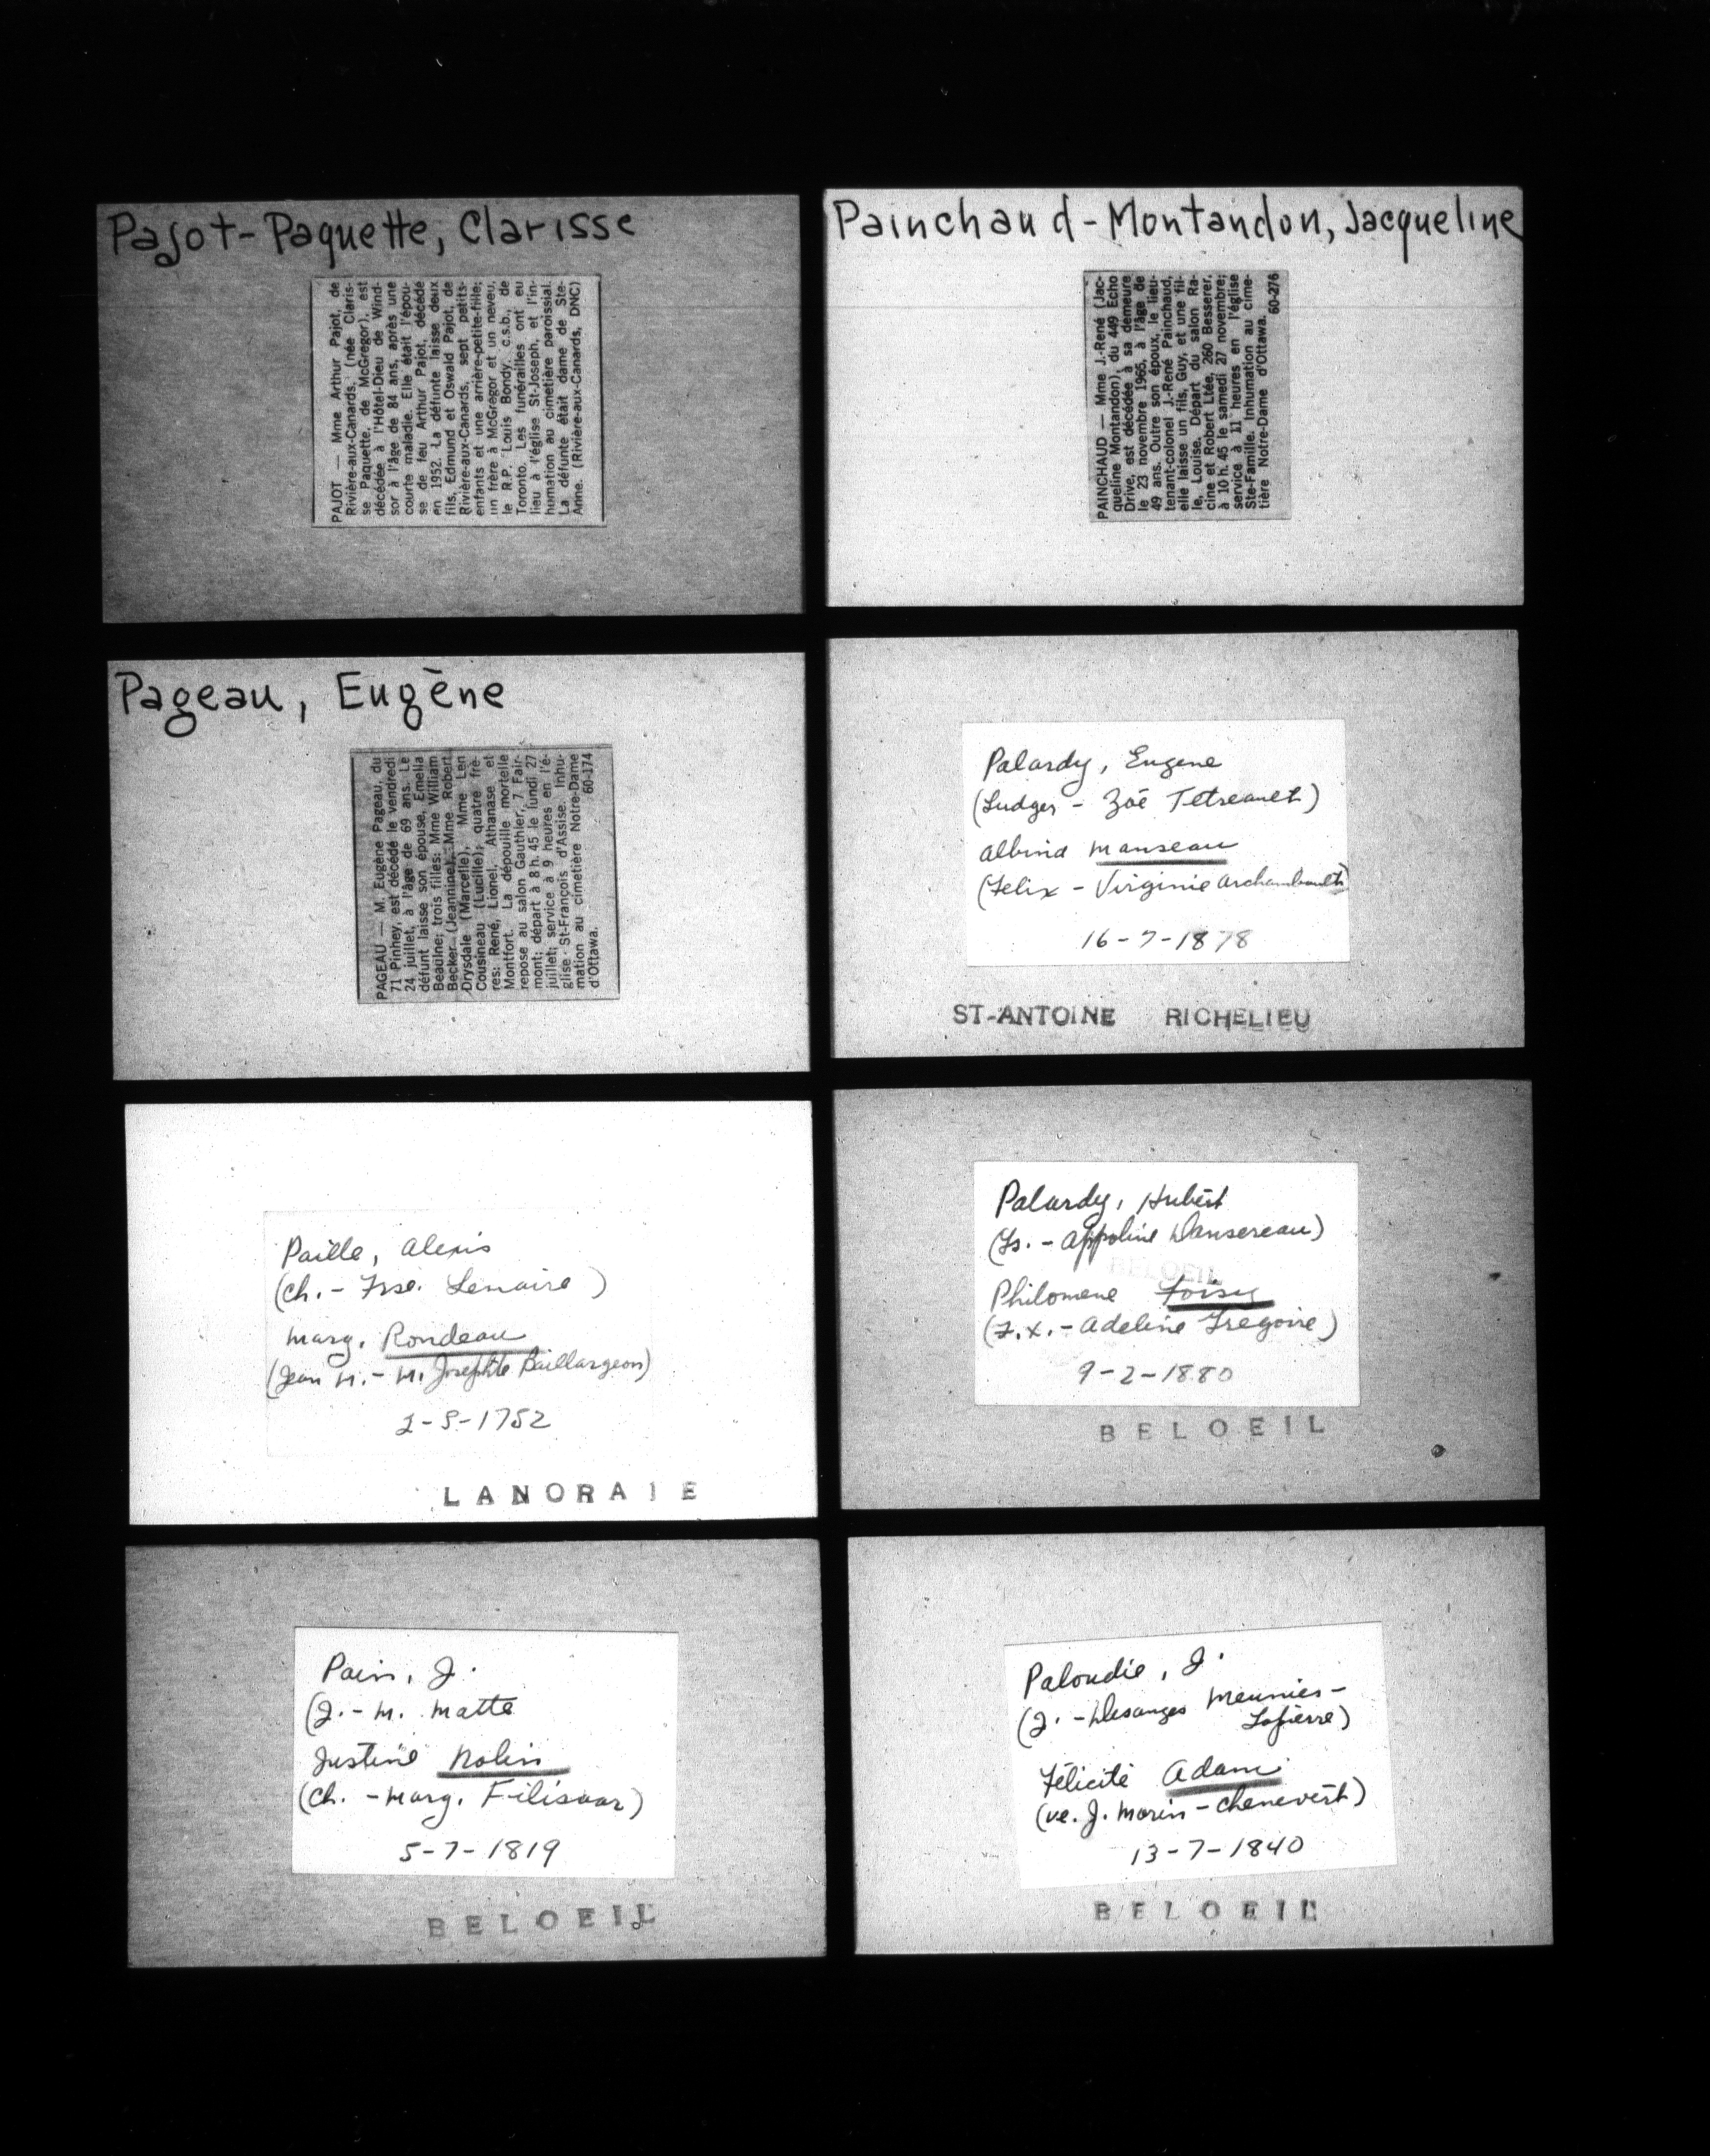 Pajot-Paquette, Clarisse
PAJOT — Mme Arthur Pajot, de
Rivière-aux-Canards, (née Claris-
se Paquette, de McGregor), est
décédée à l'Hôtel-Dieu de Wind-
sor à l'âge de 84 ans, après une
courte maladie. Elle était l'épou-
se de feu Arthur Pajot, décédé
en 1952. La défunte laisse deux
fils, Edmund et Oswald Pajot, de
Rivière-aux-Canards, sept petits-
enfants et une arrière-petite-fille;
un frère à McGregor et un neveu,
le R.P. Louis Bondy, c.s.b., de
Toronto. Les funérailles ont eu
lieu à l'église St-Joseph, et l'in-
humation au cimetière paroissial.
La défunte était dame de Ste-
Anne. (Rivière-aux-Canards, DNC)
Painchaud-Montandon, Jacqueline
PAINCHAUD — Mme J.-René (Jac-
queline Montandon), du 449 Echo
Drive, est décédée à sa demeure
le 23 novembre 1965, à l'âge de
49 ans. Outre son époux, le lieu-
tenant-colonel J.-René Painchaud,
elle laisse un fils, Guy, et une fil-
le, Louise. Départ du salon Ra-
cine et Robert Ltée, 260 Besserer,
à 10 h. 45 le samedi 27 novembre;
service à 11 heures en l'église
Ste-Famille. Inhumation au cime-
tière Notre-Dame d'Ottawa.
60-276
Pageau, Eugène
PAGEAU — M. Eugène Pageau, du
71 Pinhey, est décédé le vendredi
24 juillet, à l'âge de 69 ans. Le
défunt laisse son épouse, Emelia
Beaulne; trois filles: Mme William
Becker (Jeannine), Mme Robert
Drysdale (Marcelle), Mme Len
Cousineau (Lucille); quatre frè-
res: René, Lionel, Athanase et
Montfort. La dépouille mortelle
repose au salon Gauthier, 7 Fair-
mont; départ à 8 h. 45 le lundi 27
juillet; service à 9 heures en l'é-
glise St-François d'Assise. Inhu-
mation au cimetière Notre-Dame
d'Ottawa.
60-174
Palardy, Eugene
(Ludger - Zoé Tetreault)
Albina Manseau
(Felix - Virginie Archambault)
16-7-1878
ST-ANTOINE RICHELIEU
Paille, Alexis
(Ch. - Frse. Lemaire)
Marg. Rondeau
(Jean M. - M. Josephte Baillargeon)
2-5-1752
LANORAIE
Palardy, Hubert
(Fs. - Appoline Dansereau)
BELOEIL
Philomene Foisy
(F.X. - Adeline Fregoire)
9-2-1880
BELOEIL
Pain, J.
(J. - M. Matte
Justine Nolin
(Ch. - Marg. )
5-7-1819
BELOEIL
Paloudie, J.
(J. - Desanges Meunier-
Lapierre)
Félicité Adam
(ve. J. Morin - Chenevert)
13-7-1840
BELOEIL